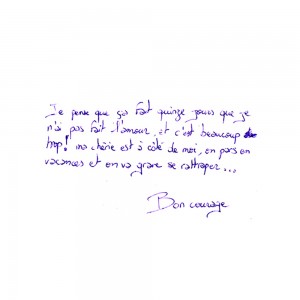 Je pense que ça fait quinze jours que je
n'ai pas fait l'amour, et c'est beaucoup
trop! ma chérie est à côté de moi, on pars en
vacances et on va grave se rattraper...
Bon courage